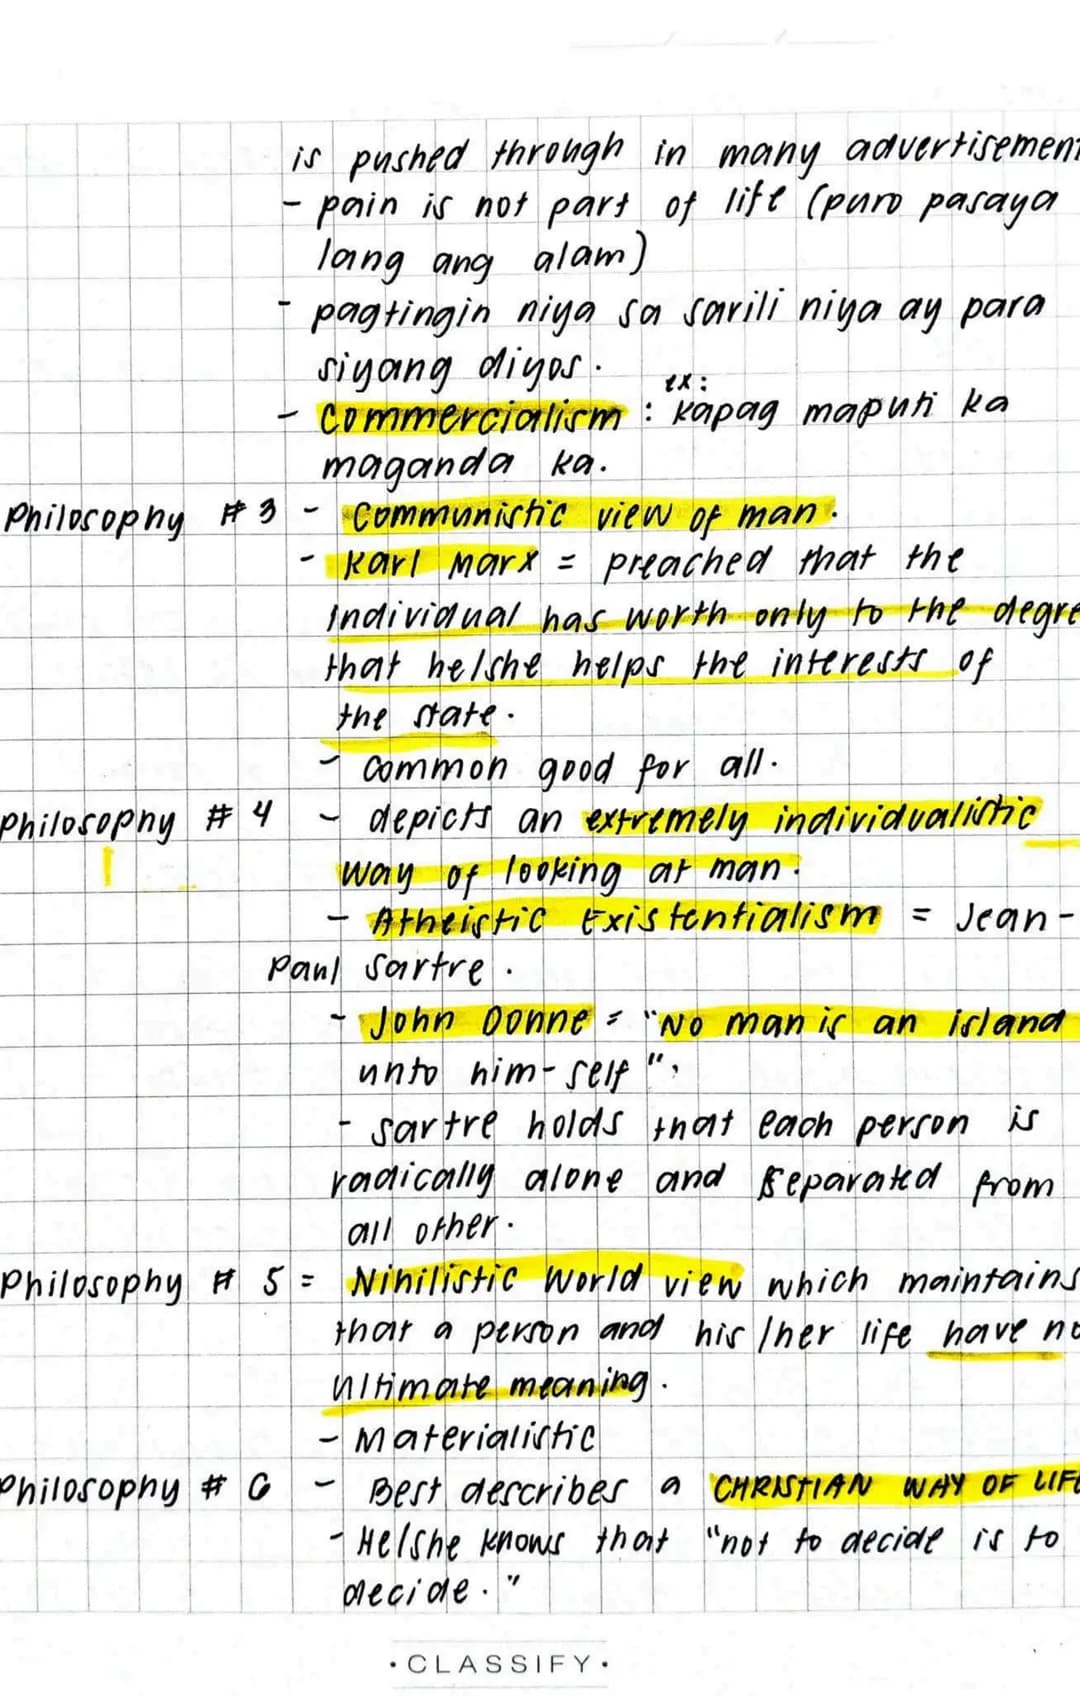 is pushed through in many advertisement
- pain is not part of life (puro pasaya
lang ang alam)
- pagtingin niya sa sarili niya ay para
siyang diyos.
ex:
- Commercialism : kapag maputi ka
maganda ka.
Philosophy # 3 - Communistic view of man.
- Karl Marx = preached that the
individual has worth only to the degre
that he/she helps the interests of
the state.
- common good for all.
Philosophy # 4 - depicts an extremely individualistic
way of looking at man.
- Atheistic Existentialism = Jean-
Paul Sartre.
- John Donne = "No man is an island
unto him-self",
- Sartre holds that each person is
radically alone and separated from
all other.
Philosophy # 5 = Nihilistic World view which maintains
that a person and his/her life have no
ultimate meaning.
- Materialistic
Philosophy # 6 - Best describes a CHRISTIAN WAY OF LIFE
- He/she knows that "not to decide is to
decide."
• CLASSIFY •